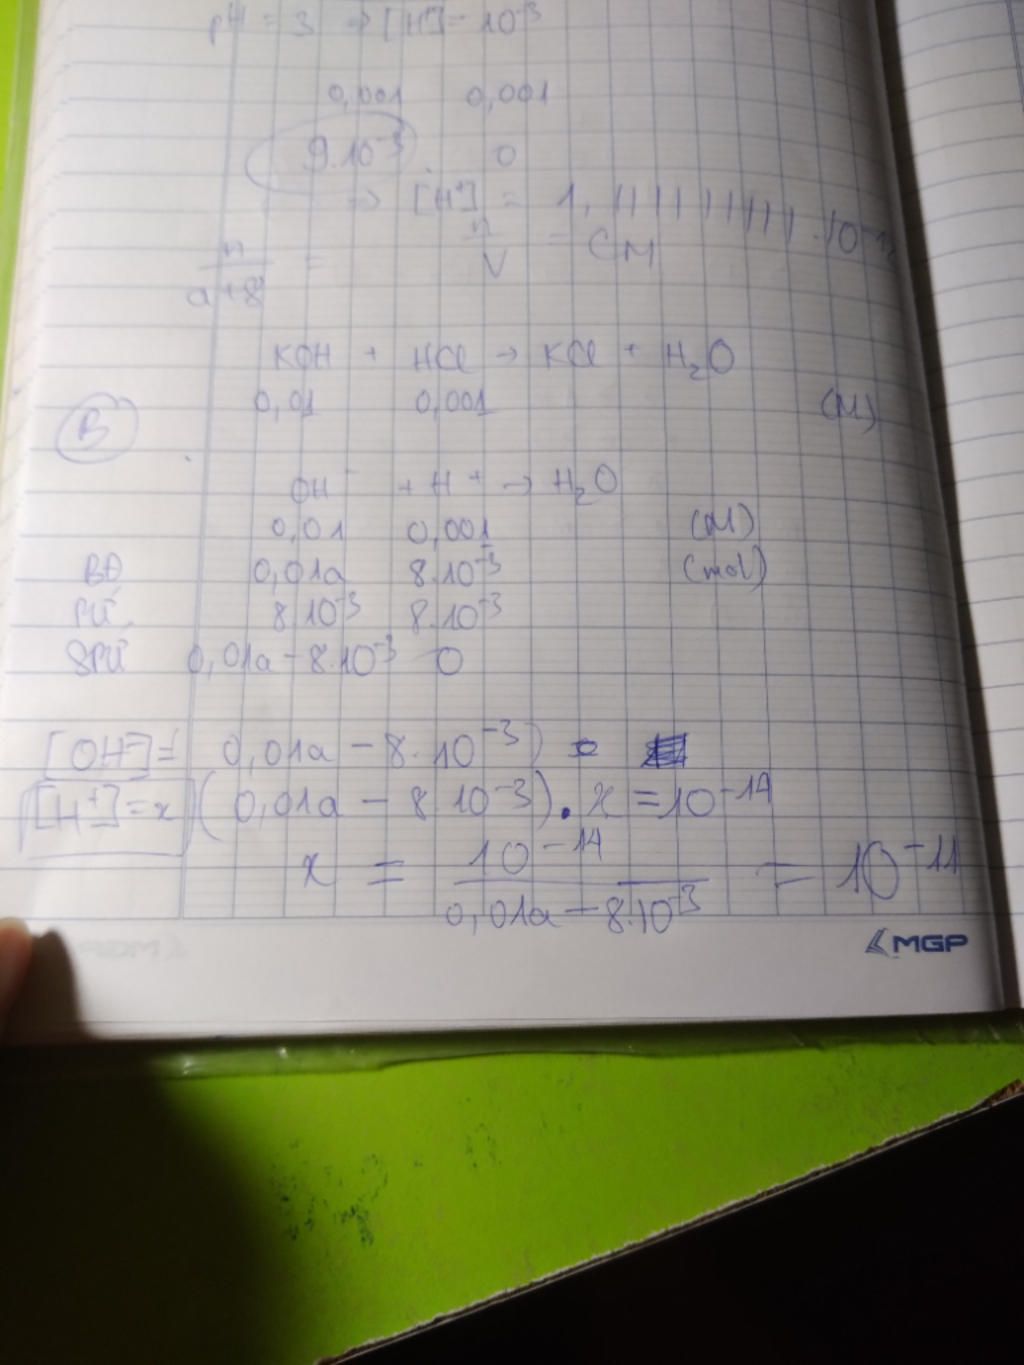 pH = 3 → [H⁺] = 10⁻³
0,001 0,001
9.10⁻³ 0
→ [H⁺] = 1,1111111111.10⁻¹²
n/(a+8) = n/V = CM
KOH + HCl → KCl + H₂O
0,01 0,001 (M)
B
OH⁻ + H⁺ → H₂O
0,01 0,001 (M)
BĐ 0,01a 8.10⁻³ (mol)
PƯ 8.10⁻³ 8.10⁻³
SPƯ 0,01a - 8.10⁻³ 0
[OH⁻] = 0,01a - 8.10⁻³) =
[H⁺] = x (0,01a - 8.10⁻³) . x = 10⁻¹⁴
x = 10⁻¹⁴/(0,01a - 8.10⁻³) = 10⁻¹¹
MGP